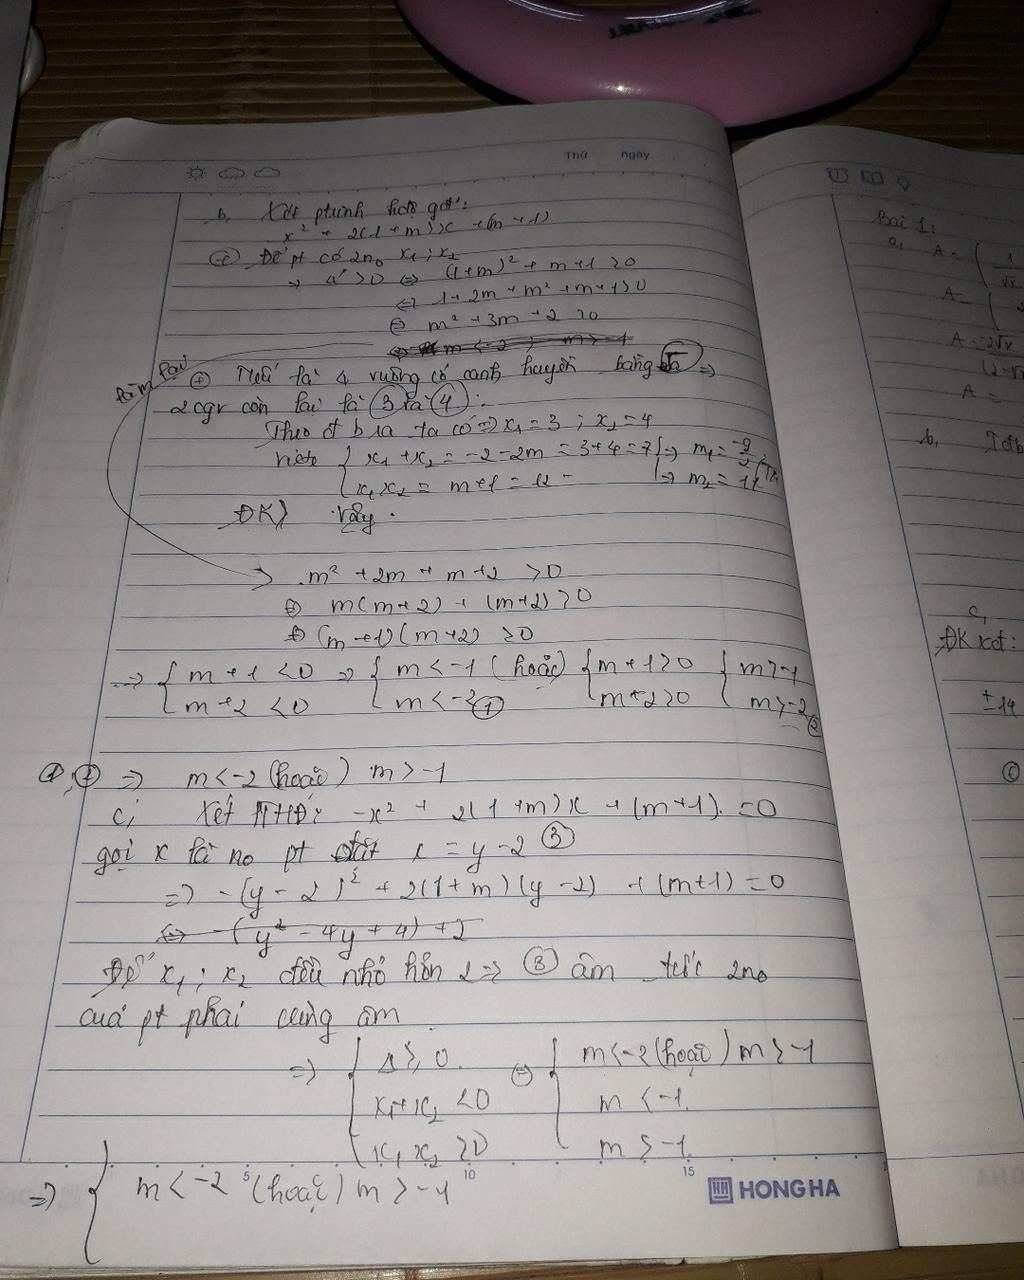 Thứ ngày
b, Xét ptrình hđộ gđ:
x² + 2(1+m)x + (m+1)
Để pt có 2no x₁; x₂
⇒ Δ' > 0 ⇔ (1+m)² + m+1 > 0
⇔ 1 + 2m + m² + m+1 > 0
⇔ m² + 3m + 2 > 0
⇔ m < -2 ; m > -1
làm lại
⊕ Nếu là Δ vuông có cạnh huyền bằng 5 ⇒
2cgv còn lại là 3 và 4 :
Theo đb ra ta có ⇒ x₁ = 3 ; x₂ = 4
x₁ + x₂ = -2-2m = 3+4 = 7 ⇒ m₁ = -9/2
x₁x₂ = m+1 = 12 ⇒ m₂ = 11
ĐK) Vậy
m² + 2m + m+2 > 0
⇔ m(m+2) + (m+2) > 0
⇔ (m+1)(m+2) > 0
⇒ { m+1 < 0 ⇒ { m < -1 (hoặc) { m+1 > 0 { m > -1
m+2 < 0 m < -2 ① m+2 > 0 m > -2 ②
⇒ m < -2 (hoặc) m > -1
c, Xét PTHĐ: -x² + 2(1+m)x + (m+1) = 0
gọi x là no pt đặt x = y-2 ③
⇒ -(y-2)² + 2(1+m)(y-2) + (m+1) = 0
⇔ -(y² - 4y + 4) + 2
Để x₁; x₂ đều nhỏ hơn 2 ⇒ ③ âm tức 2no
của pt phải cùng âm
⇒ { Δ ≥ 0 ⇔ { m < -2 (hoặc) m > -1
x₁+x₂ < 0 m < -1
x₁x₂ > 0 m > -1
5 10 15
⇒ { m < -2 (hoặc) m > -1
HONG HA
Bài 1,
a, A = ( 1
√x
A = (
A = 2√x
A =
b,
c,
ĐK xđ:
± 14